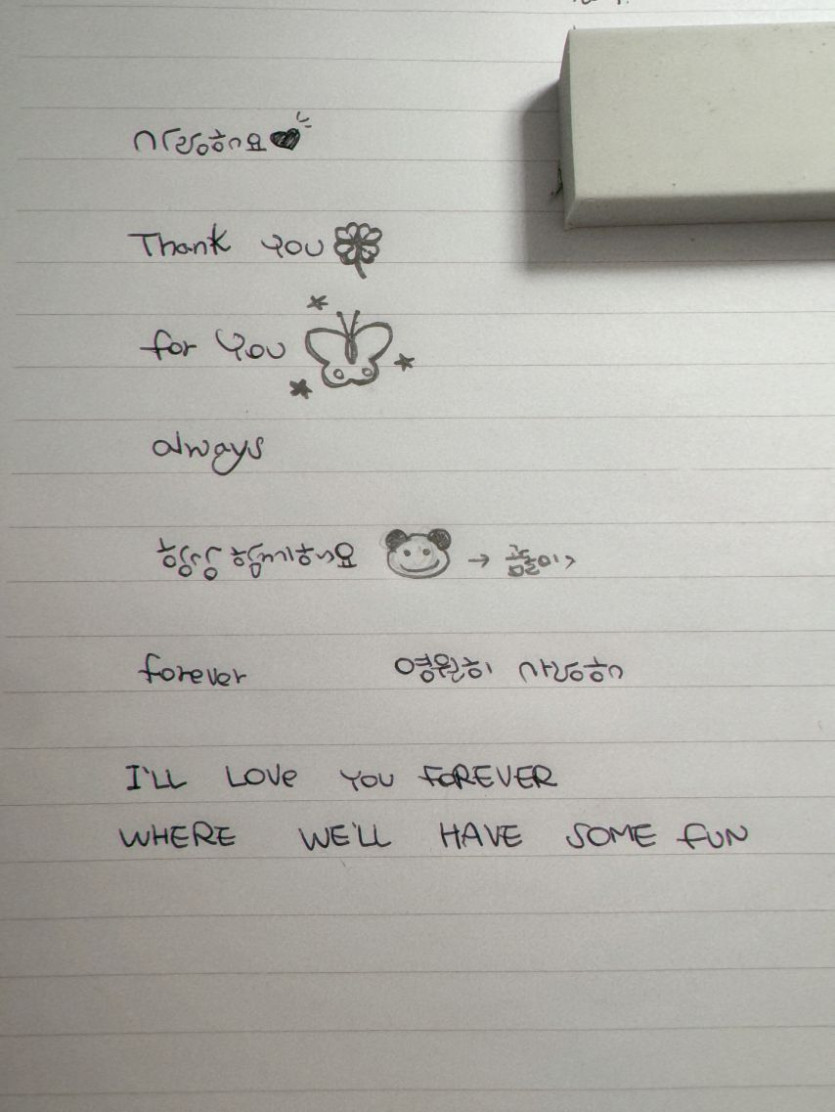 사랑해요
Thank you
for you
always
항상 함께해요 → 곰돌이
forever 영원히 사랑해
I'LL LOVE YOU FOREVER
WHERE WE'LL HAVE SOME FUN